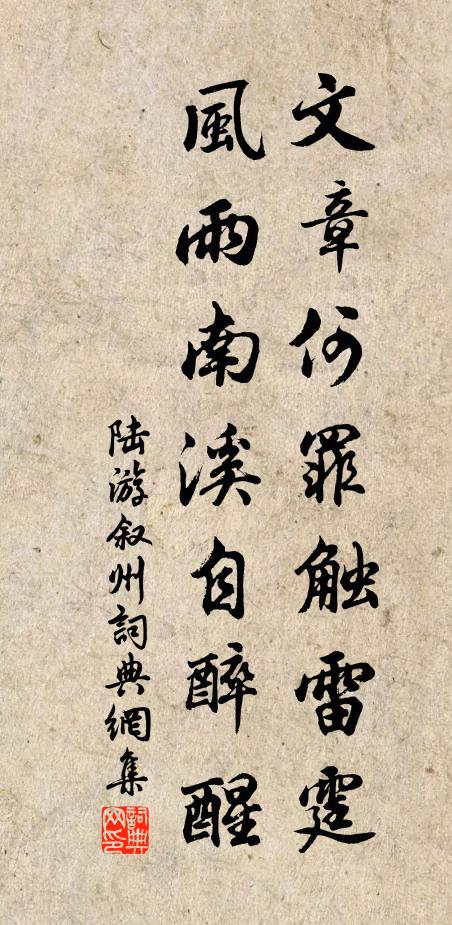 文章何罪触雷霆
風雨南溪自醉醒
陆游叙州詞典網集
詞典
网印